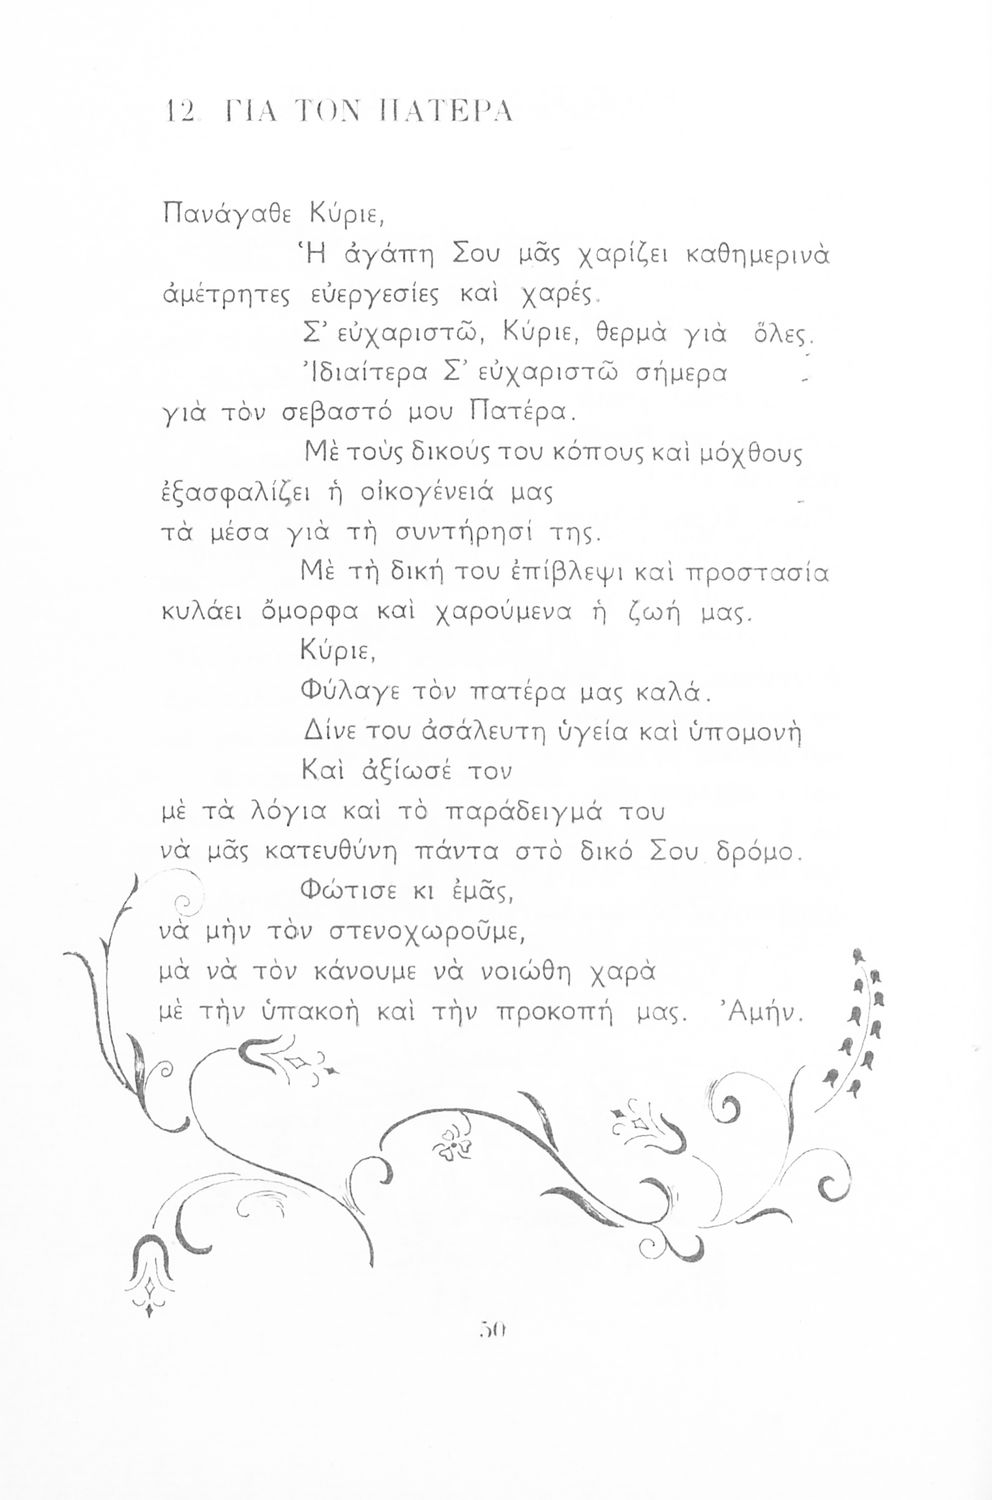 12. ΓΙΑ ΤΟΝ ΠΑΤΕΡΑ
Πανάγαθε Κύριε,
Ἡ ἀγάπη Σου μᾶς χαρίζει καθημερινὰ
ἀμέτρητες εὐεργεσίες καὶ χαρές.
Σ’ εὐχαριστῶ, Κύριε, θερμὰ γιὰ ὅλες.
Ἰδιαίτερα Σ’ εὐχαριστῶ σήμερα
γιὰ τὸν σεβαστό μου Πατέρα.
Μὲ τοὺς δικούς του κόπους καὶ μόχθους
ἐξασφαλίζει ἡ οἰκογένειά μας
τὰ μέσα γιὰ τὴ συντήρησί της.
Μὲ τὴ δική του ἐπίβλεψι καὶ προστασία
κυλάει ὄμορφα καὶ χαρούμενα ἡ ζωή μας.
Κύριε,
Φύλαγε τὸν πατέρα μας καλά.
Δίνε του ἀσάλευτη ὑγεία καὶ ὑπομονὴ
Καὶ ἀξίωσέ τον
μὲ τὰ λόγια καὶ τὸ παράδειγμά του
νὰ μᾶς κατευθύνη πάντα στὸ δικό Σου δρόμο.
Φώτισε κι ἐμᾶς,
νὰ μὴν τὸν στενοχωροῦμε,
μὰ νὰ τὸν κάνουμε νὰ νοιώθη χαρὰ
μὲ τὴν ὑπακοὴ καὶ τὴν προκοπή μας. Ἀμήν.
50